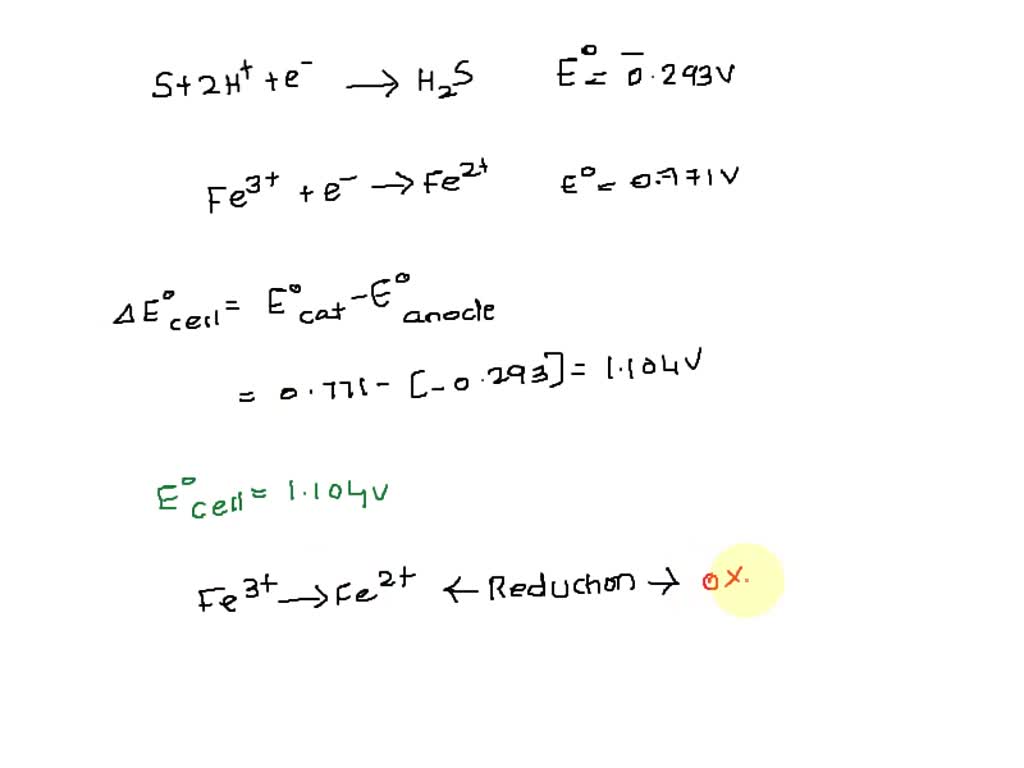 S+2H⁺ + e⁻ → H₂S E° = -0.293V
Fe³⁺ + e⁻ → Fe²⁺ E° = 0.771V
ΔE°cell = E°cat - E°anode
= 0.771 - [-0.293] = 1.104V
E°cell = 1.104V
Fe³⁺ → Fe²⁺ ← Reduchon → ox.